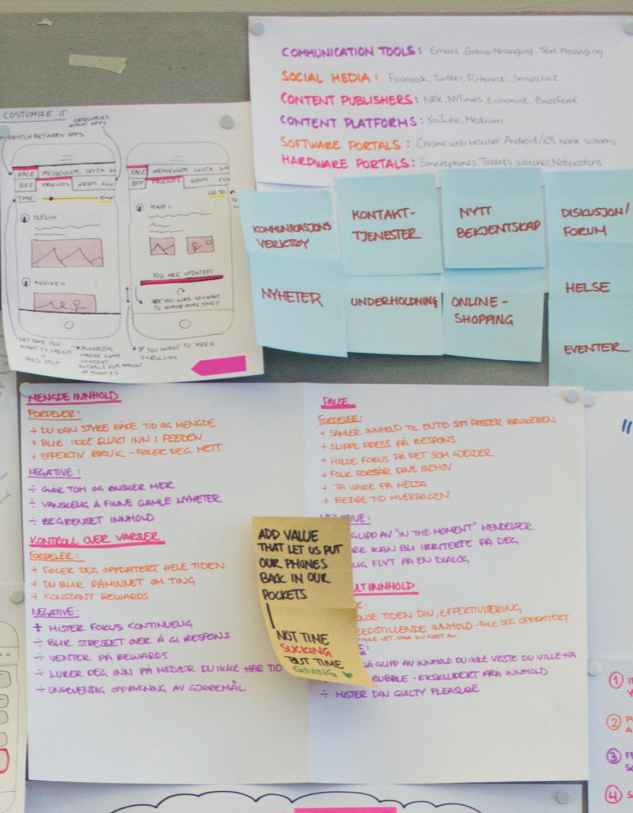 COMMUNICATION TOOLS: Email, Group Messaging, Text Messaging
SOCIAL MEDIA: Facebook, Twitter, Pinterest, Snapchat
CONTENT PUBLISHERS: NRK, NYTimes, Economist, Buzzfeed
CONTENT PLATFORMS: YouTube, Medium
SOFTWARE PORTALS: Chrome web browser, Android/iOS home screens
HARDWARE PORTALS: Smartphones, Tablets, Watches, Notifications
COSTUMIZE IT
CATEGORIES
SWITCH BETWEEN APPS
FACE MESSENGER INSTA
BFF FRIENDS NEWS
TIME:
YOU ARE UPDATED!
IF YOU WANT TO KEEP
SCROLLING
KOMMUNIKASJONS
VERKTØY
KONTAKT-
TJENESTER
NYTT
BEKJENTSKAP
DISKUSJON/
FORUM
NYHETER
UNDERHOLDNING
ONLINE-
SHOPPING
HELSE
EVENTER
MENGDE INNHOLD
FORDELER:
+ DU KAN STYRE BÅDE TID OG MENGDE
+ BLIR IKKE SLUKT INN I FEEDEN
+ EFFEKTIV BRUK - FØLER DEG METT
NEGATIVE:
÷ GÅR TOM OG ØNSKER MER
÷ VANSKELIG Å FINNE GAMLE NYHETER
÷ BEGRENSET INNHOLD
KONTROLL OVER VARSLER
FORDELER:
+ FØLER DEG OPPDATERT HELE TIDEN
+ DU BLIR PÅMINNET OM TING
+ KONSTANT REWARDS
NEGATIVE:
÷ MISTER FOKUS CONTINUELIG
÷ BLIR STRESSET OVER Å GI RESPONS
÷ VENTER PÅ REWARDS
÷ LURER DEG INN PÅ MEDIER DU IKKE HAR TID
÷ UNØDVENDIG OPPBYGNING AV GJØREMÅL
PAUSE
FORDELER:
+ SAMLER INNHOLD TIL EN TID SOM PASSER BRUKEREN
+ SLIPPE PRESS PÅ RESPONS
+ HOLDE FOKUS PÅ DET SOM GJELDER
+ FOLK FORSTÅR DINE BEHOV
+ TA VARE PÅ HELSA
+ BEDRE TID HVERDAGEN
GLIPP AV "IN THE MOMENT" HENDELSER
KAN BLI IRRITERTE PÅ DEG
FLYT PÅ EN DIALOG
INNHOLD
TIDEN DIN, EFFEKTIVISERING
INNHOLD - FØLE SEG OPPDATERT
GLIPP AV INNHOLD DU IKKE VISSTE DU VILLE HA
BUBBLE - EKSKLUDERT FRA INNHOLD
÷ MISTER DIN GUILTY PLEASURE
ADD VALUE
THAT LET US PUT
OUR PHONES
BACK IN OUR
POCKETS
NOT TIME
SUCKING
BUT TIME
GIVING
1
2
3
4